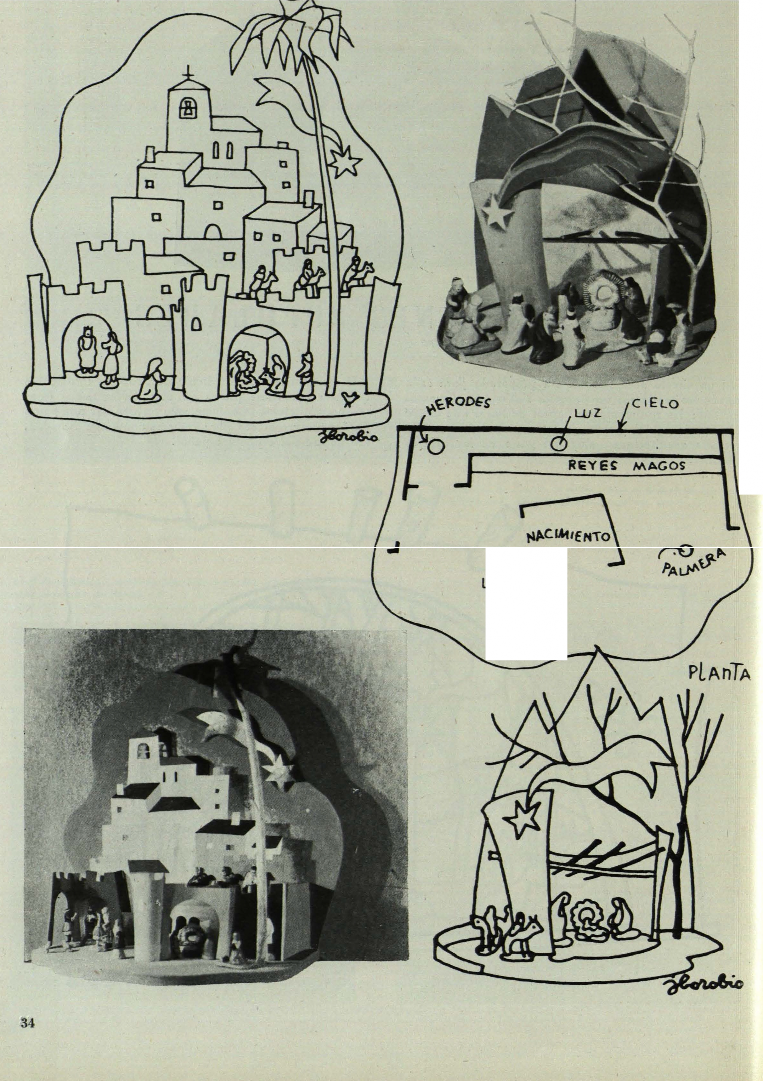 Borobio
HERODES
LUZ
CIELO
REYES MAGOS
NACIMIENTO
PALMERA
PLANTA
Borobio
34